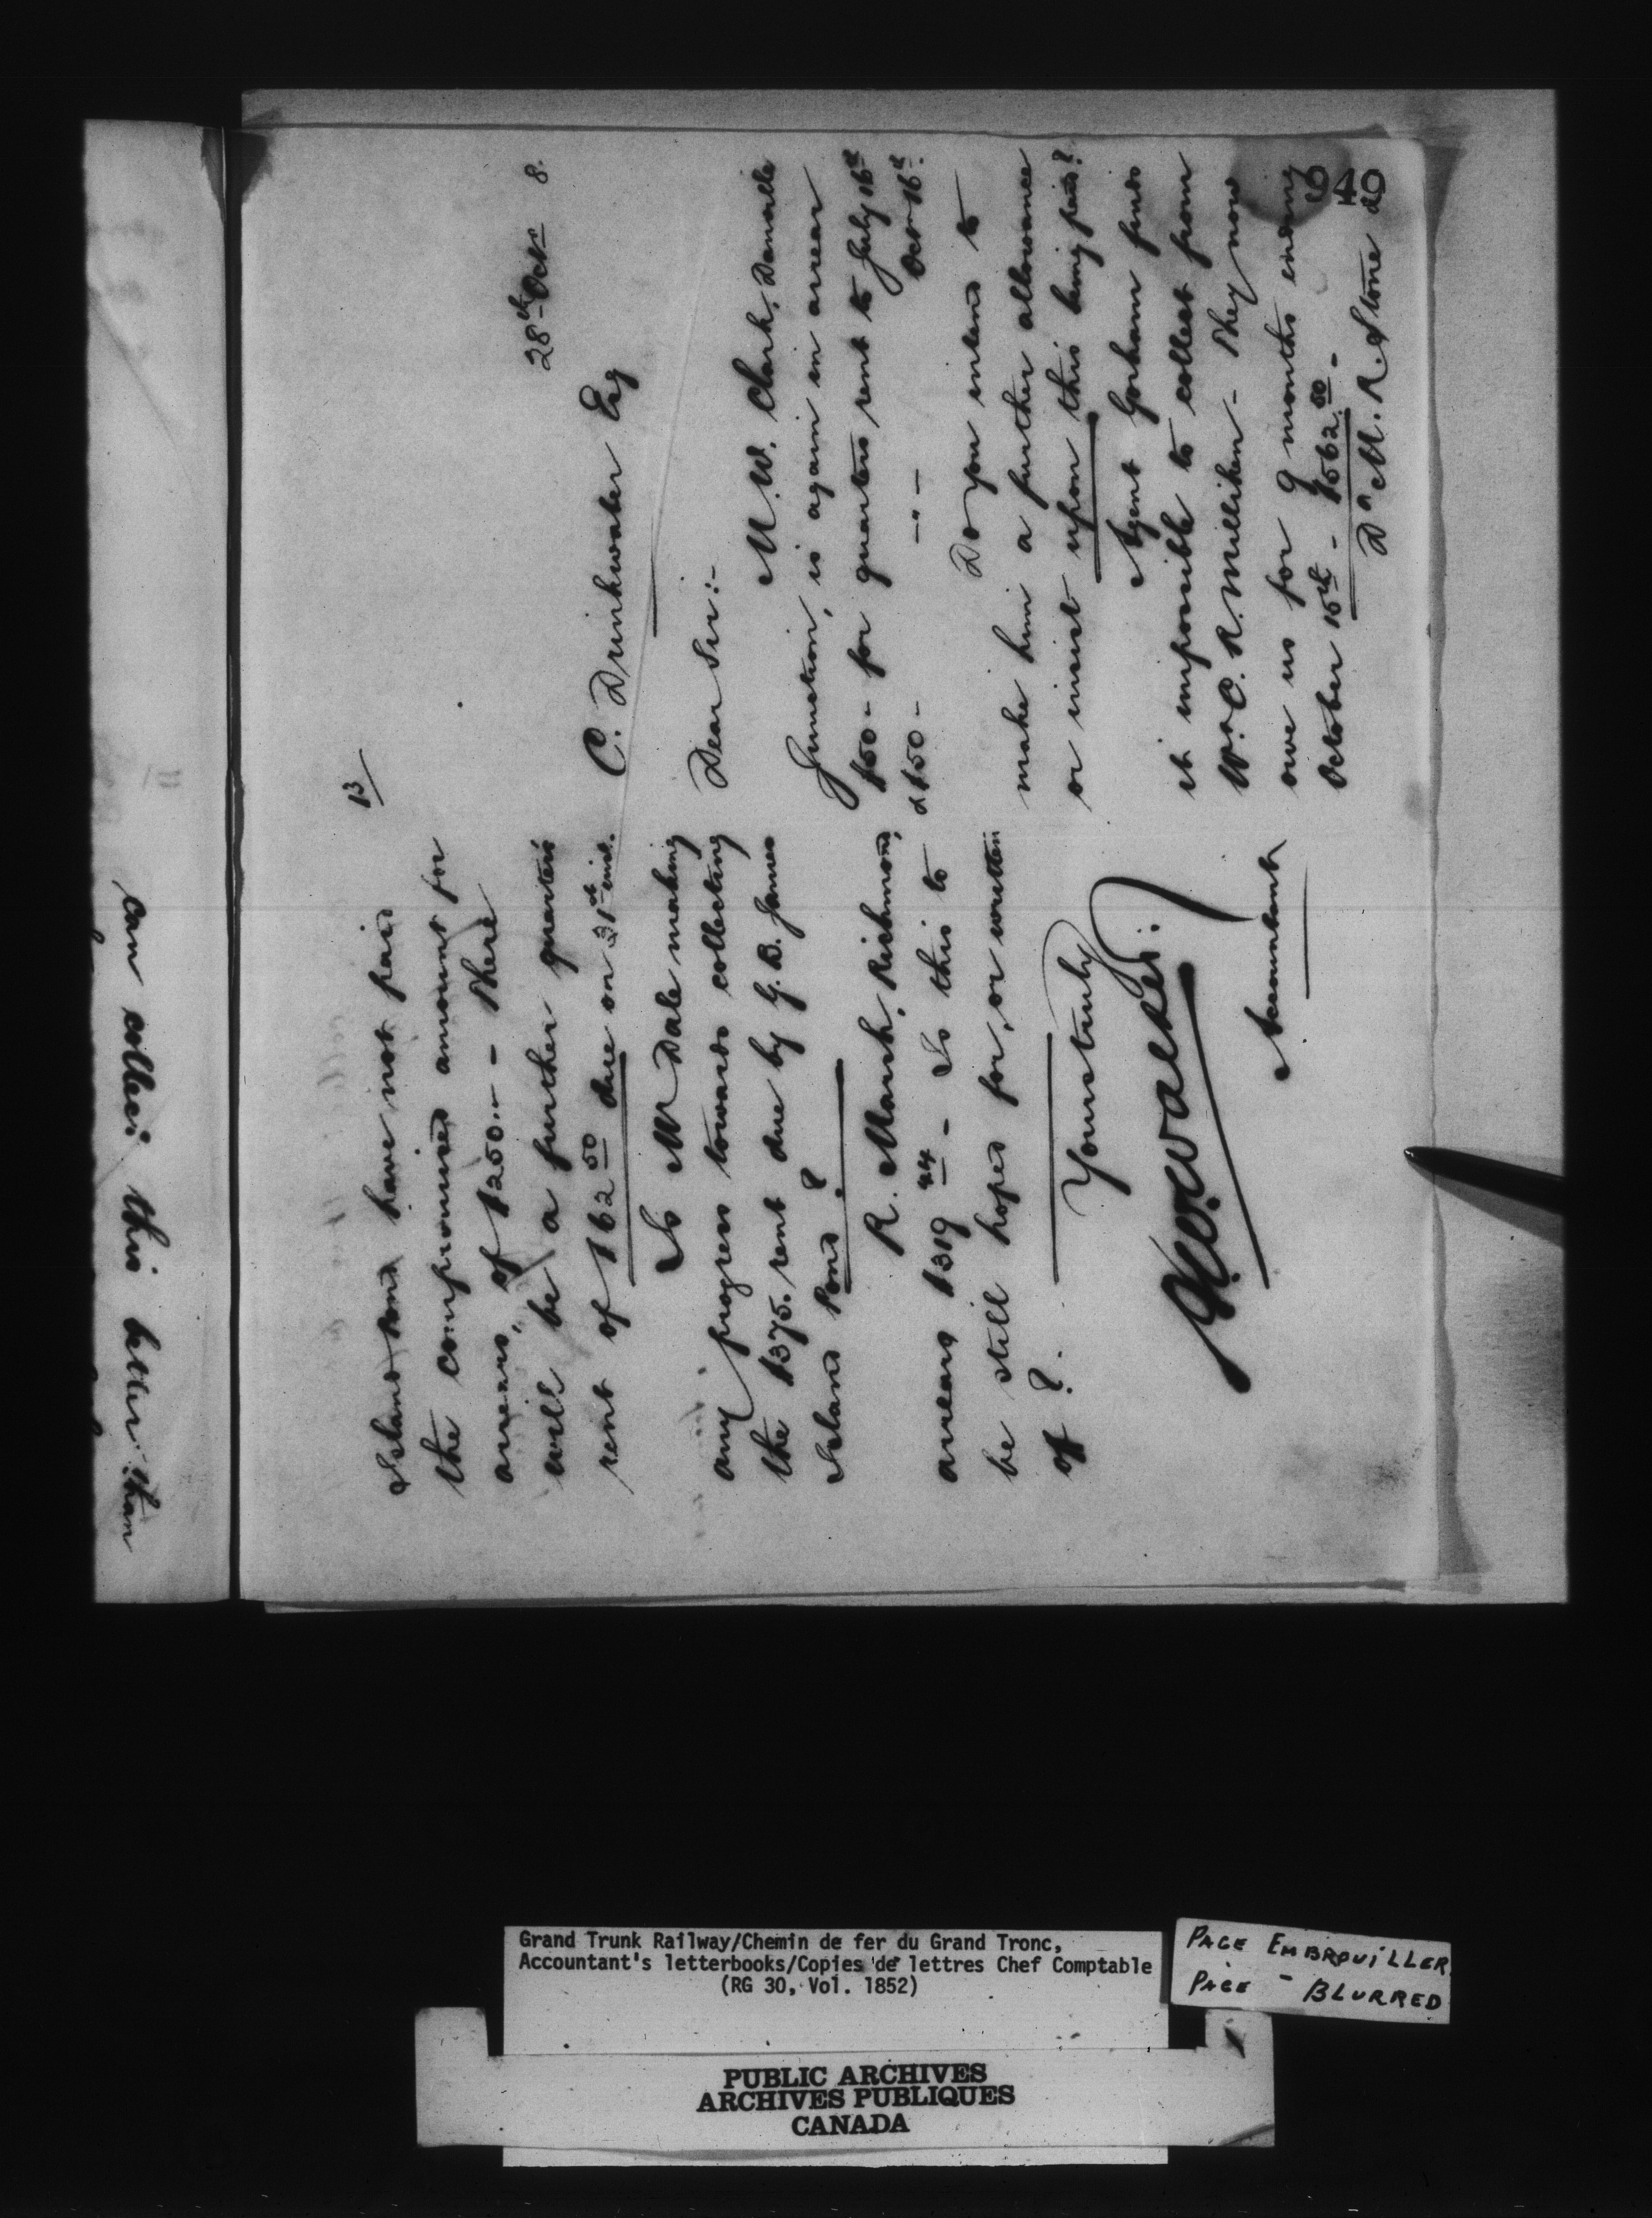 949
28th Octr 8.
C. Drinkwater Esq
Dear Sir:-
M. W. Clark, Danville
Junction, is again in arrear
$50- for quarters rent to July 16th
& $50- - " - Octr 16th.
Do you intend to
make him a further allowance
or insist upon this being paid?
Agent Gorham finds
it impossible to collect from
W. & C. R. Milliken - They now
owe us for 9 months ending
October 15th - $562.50 -
Do M. R. Stone &
B/
Island Pond have not paid
the compromised amount for
arrears, of $250.- - There
will be a further quarter's
rent of $62 50 due on 31st inst.
Is Mr Dale making
any progress towards collecting
the $375. rent due by G. B. James
Island Pond?
R. Marsh, Richmond,
arrears $319 44 - Is this to
be still hoped for, or written
of?
Yours truly
Accountant
can collect this better than
Grand Trunk Railway/Chemin de fer du Grand Tronc,
Accountant's letterbooks/Copies de lettres Chef Comptable
(RG 30, Vol. 1852)
PAGE EMBROUILLER
PAGE - BLURRED
PUBLIC ARCHIVES
ARCHIVES PUBLIQUES
CANADA